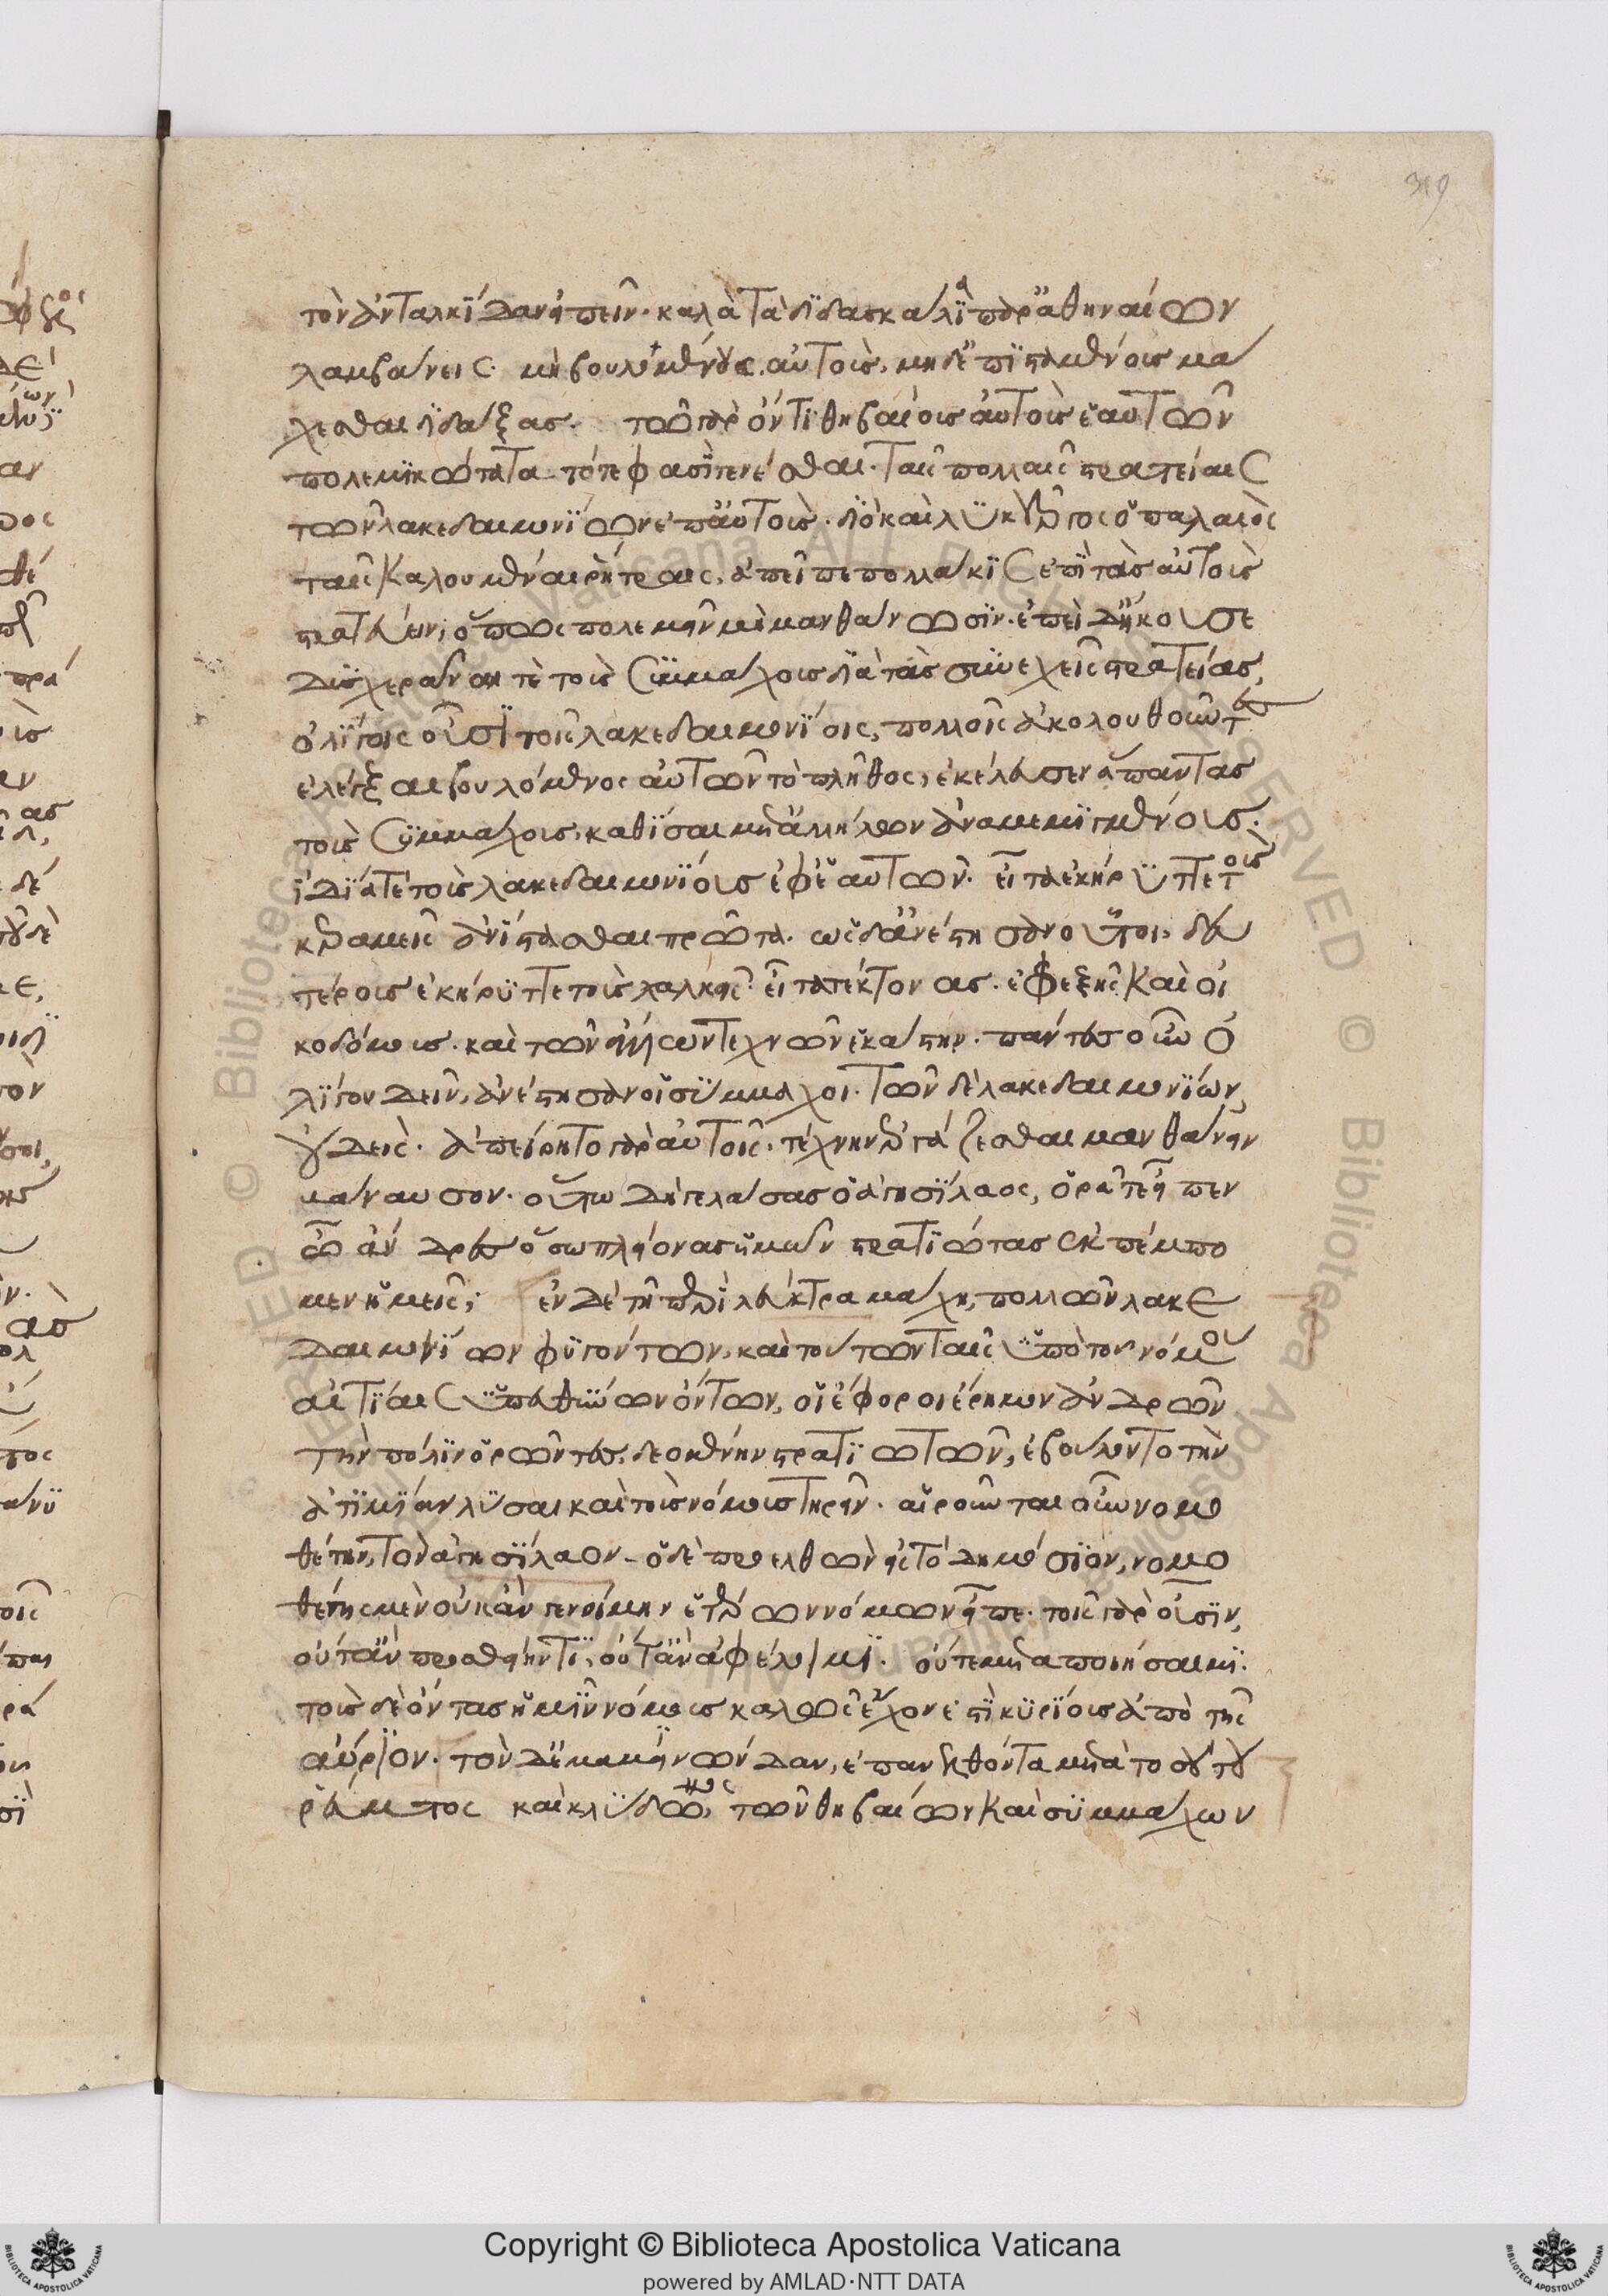 319
τὸν ἀνταλκίδαν εἰπεῖν· καλὰ τὰ διδασκάλια παρ' ἀθηναίων
λαμβάνεις· μὴ βουλομένους αὐτοὺς, μηδ' ἐπισταμένους μά
χεσθαι διδάξας· τῶ γὰρ ὄντι θηβαίους αὐτοὺς ἑαυτῶν
πολεμικώτατα τότέ φασι γενέσθαι· ταῖς πολλαῖς στρατείαις
τῶν λακεδαιμονίων ἐπ' αὐτοὺς· διὸ καὶ λυκοῦργος ὁ παλαιὸς
ταῖς καλουμέναις ῥήτραις, ἀπεῖπε πολλάκις ἐπὶ τοὺς αὐτοὺς
στρατεύειν, ὅπως πολεμεῖν μὴ μανθάνωσιν· ἐπεὶ δ' ἤκουσε
δυσχεραίνοντε τοὺς συμμάχους διὰ τὰς συνεχεῖς στρατείας,
ὀλίγοις οὖσι τοῖς λακεδαιμονίοις, πολλοὶ ἀκολουθοῦντες
ἐλέγξαι βουλόμενος αὐτῶν τὸ πλῆθος, ἐκέλευσεν ἅπαντας
τοὺς συμμάχους, καθίσαι μετ' ἀλλήλων ἀναμεμιγμένους·
ἰδία τὲ τοὺς λακεδαιμονίους ἐφ' ἑαυτῶν· εἶτα ἐκήρυττε τοὺς
κεραμεῖς ἀνίστασθαι πρῶτα· ὡς δ' ἀνέστησαν οὗτοι, δευ
τέρους ἐκήρυττε τοὺς χαλκεῖς· εἶτα τέκτονας· ἐφεξῆς καὶ οἰ
κοδόμους· καὶ τῶν ἄλλων τεχνῶν ἑκάστην· πάντες οὖν ὀ
λίγου δεῖν, ἀνέστησαν οἱ σύμμαχοι· τῶν δὲ λακεδαιμονίων,
οὐδείς· ἀπείρητο γὰρ αὐτοῖς· τέχνην ἐργάζεσθαι μανθάνειν
βάναυσον· οὕτω δὴ γελάσας ὁ ἀγησίλαος, ὁρᾶτε εἶπεν
ὦ ἄνδρες ὅσω πλείονας ὑμῶν στρατιώτας ἐκπέμπο
μεν ἡμεῖς; ἐν δὲ τῆ περὶ λεύκτρα μάχη, πολλῶν λακε
δαιμονίων φυγόντων, καὶ τούτων ταῖς ὑπὸ τοῦ νόμου
αἰτίαις ὑπευθύνων ὄντων, οἱ ἔφοροι ἔρημον ἀνδρῶν
τὴν πόλιν ὁρῶντες, δεομένην στρατιωτῶν, ἐβούλοντο τὴν
ἀτιμίαν λῦσαι καὶ τοὺς νόμους τηρεῖν· αἱροῦνται οὖν νομο
θέτην, τὸν ἀγησίλαον· ὁ δὲ προελθὼν εἰς τὸ δημόσιον, νομο
θέτης μὲν οὐκ ἂν γενοίμην ἑτέρων νόμων εἶπε· τοῖς γὰρ οὖσιν,
οὔτ' ἂν προσθείην τί, οὔτ' ἂν ἀφέλοιμι· οὔτε μεταποιήσαιμι·
τοὺς δὲ ὄντας ἡμῖν νόμους καλῶς ἔχον ἐστὶ κυρίους ἀπὸ τῆς
αὔριον· τὸν δ' ἐπαμεινώνδαν, ἐπανελθόντα μετὰ τοσούτου
ῥεύματος καὶ κλύδωνος, τῶν θηβαίων καὶ συμμάχων
Copyright © Biblioteca Apostolica Vaticana
powered by AMLAD·NTT DATA